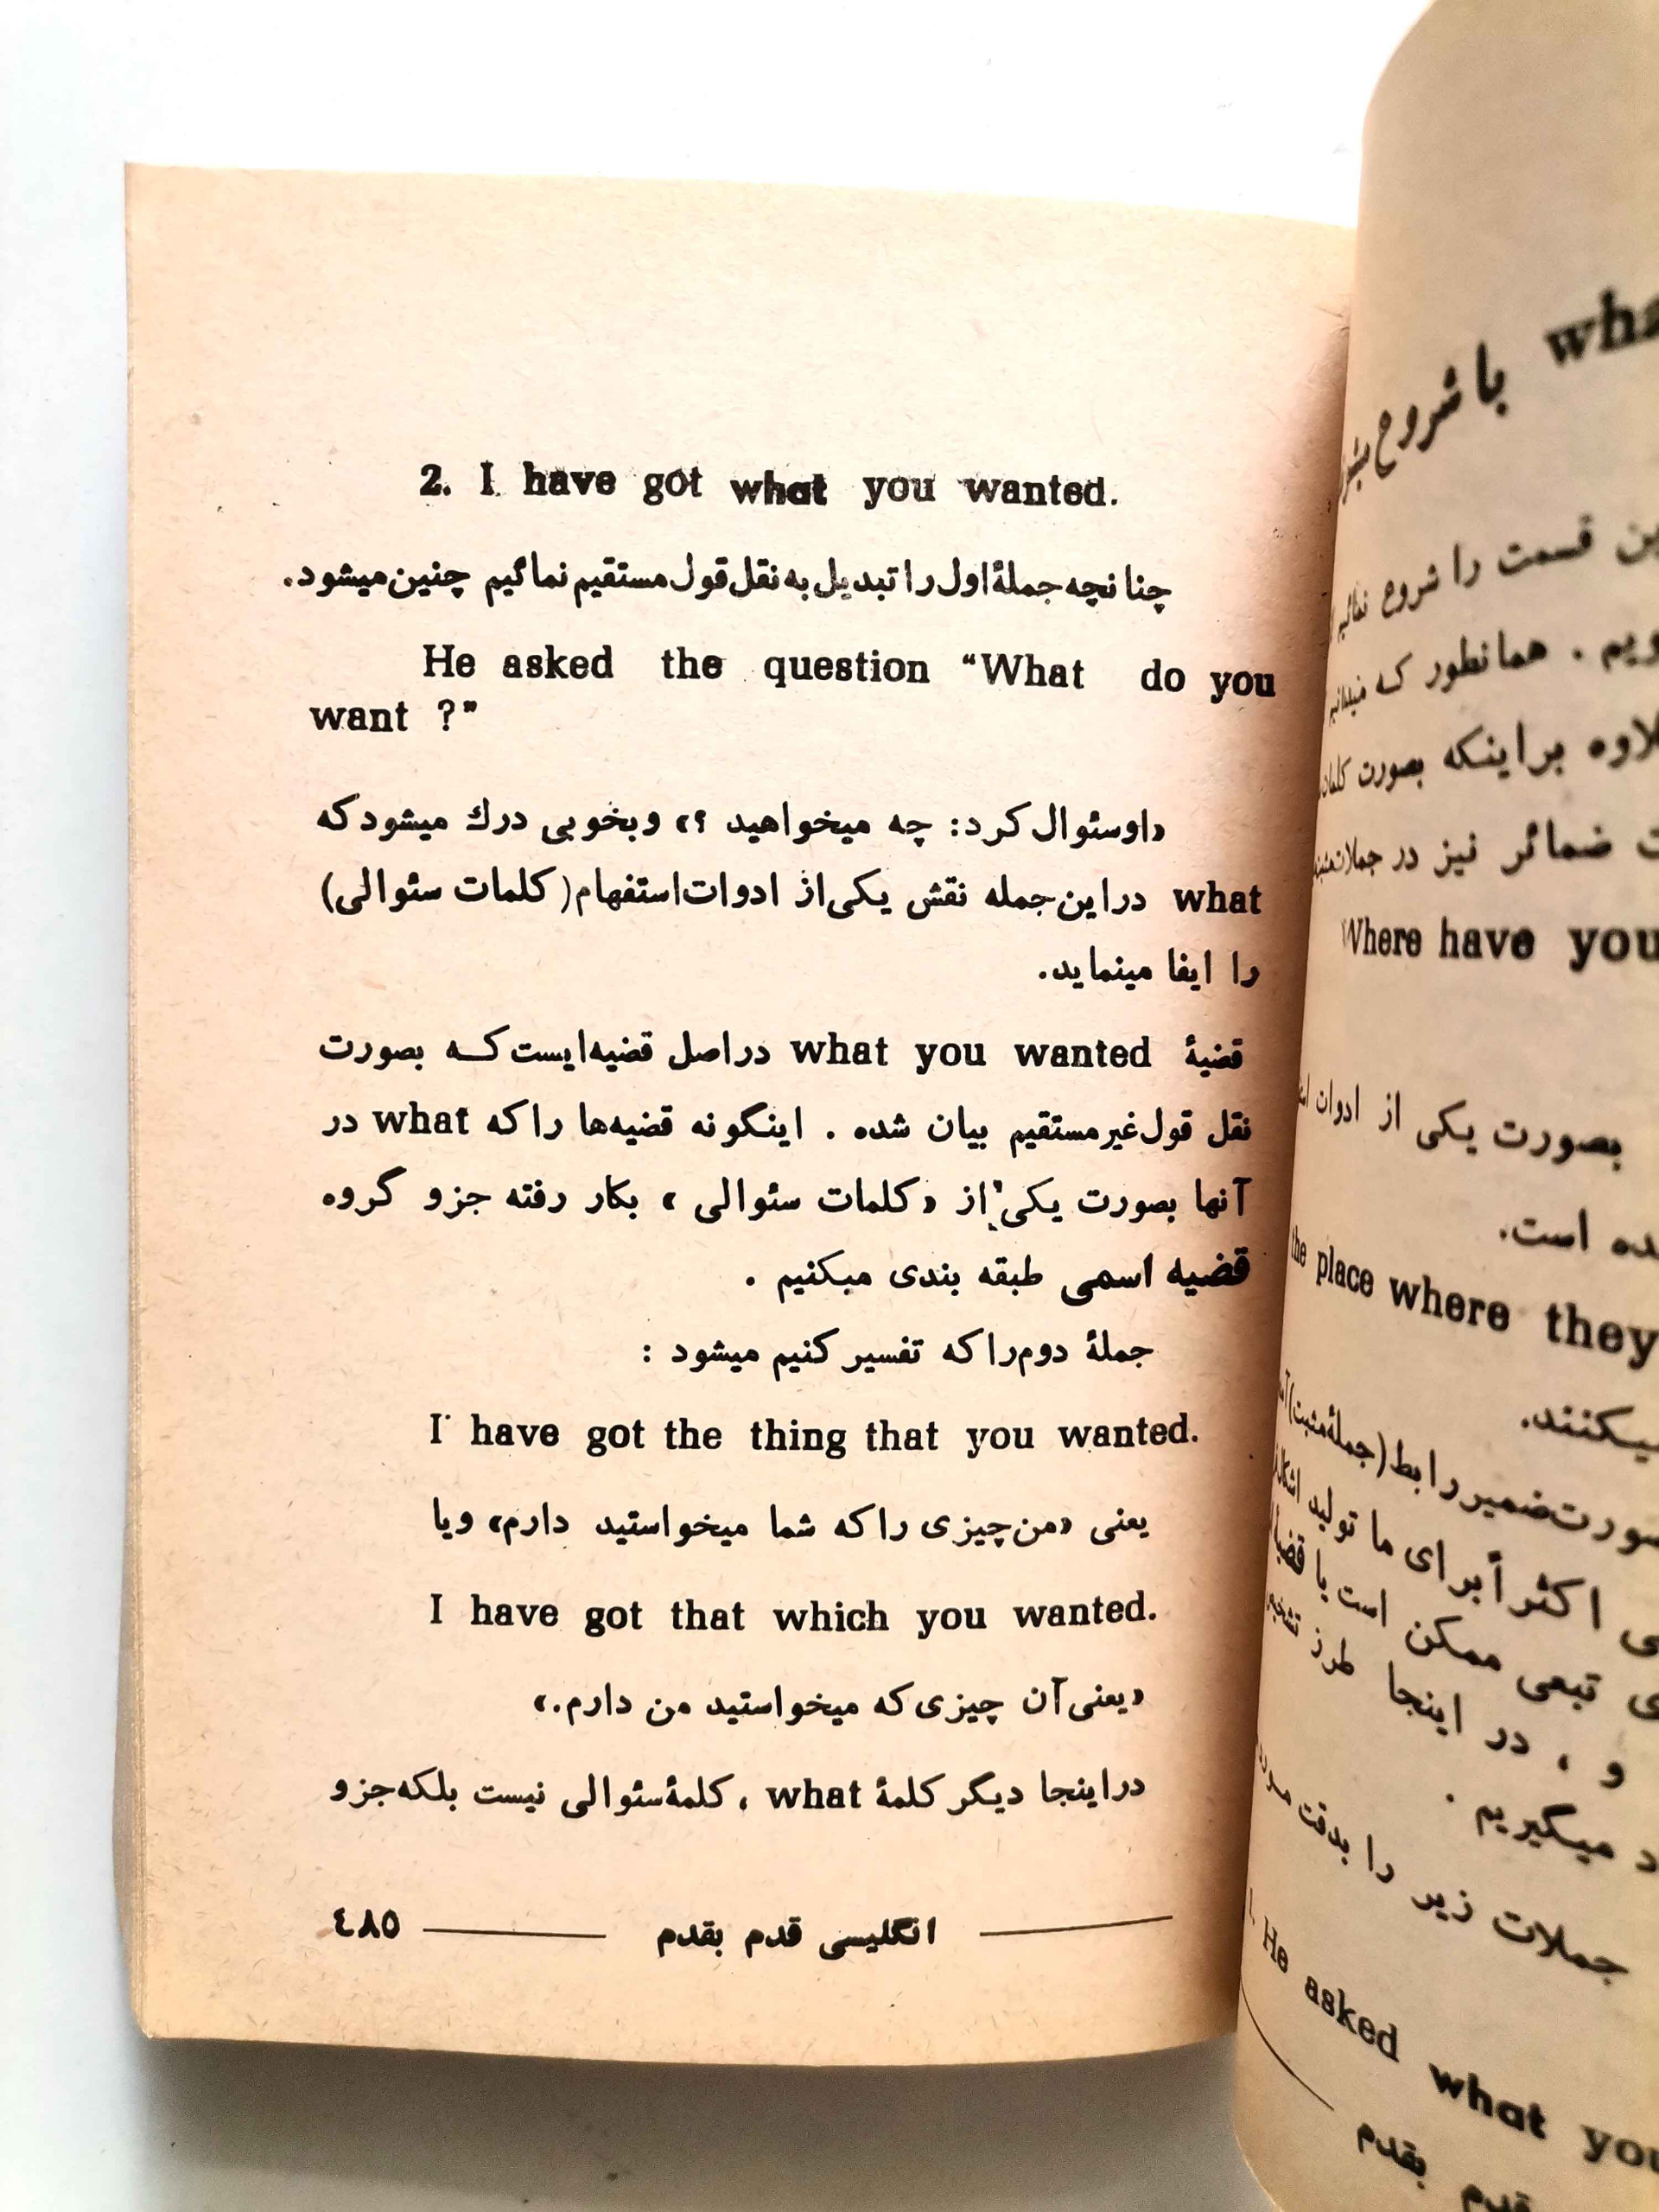 2. I have got what you wanted.
چنانچه جملهٔ اول را تبدیل به نقل قول مستقیم نمائیم چنین میشود.
He asked the question “What do you
want ?”
«او سئوال کرد: چه میخواهید ؟» و بخوبی درك میشود که
what در این جمله نقش یکی از ادوات استفهام (کلمات سئوالی)
را ایفا مینماید.
قضیهٔ what you wanted در اصل قضیه‌ایست که بصورت
نقل قول غیر مستقیم بیان شده . اینگونه قضیه‌ها را که what در
آنها بصورت یکی از «کلمات سئوالی » بکار رفته جزو گروه
قضیه اسمی طبقه بندی میکنیم .
جملهٔ دوم را که تفسیر کنیم میشود :
I have got the thing that you wanted.
یعنی «من چیزی را که شما میخواستید دارم» و یا
I have got that which you wanted.
«یعنی آن چیزی که میخواستید من دارم.»
در اینجا دیگر کلمهٔ what ، کلمهٔ سئوالی نیست بلکه جزو
انگلیسی قدم بقدم ٤٨٥
با شروع میشود
قسمت را شروع نمائیم
. همانطور که میدانیم
بر اینکه بصورت
ضمائر نیز در جملات
Where have you
بصورت یکی از ادوات
است.
the place where they
میکنند.
ضمیر رابط (جملهٔ مثبت)
اکثراً برای ما تولید
تبعی ممکن است یا
و ، در اینجا طرز
میگیریم .
جملات زیر را بدقت
1. He asked what you
قدم بقدم